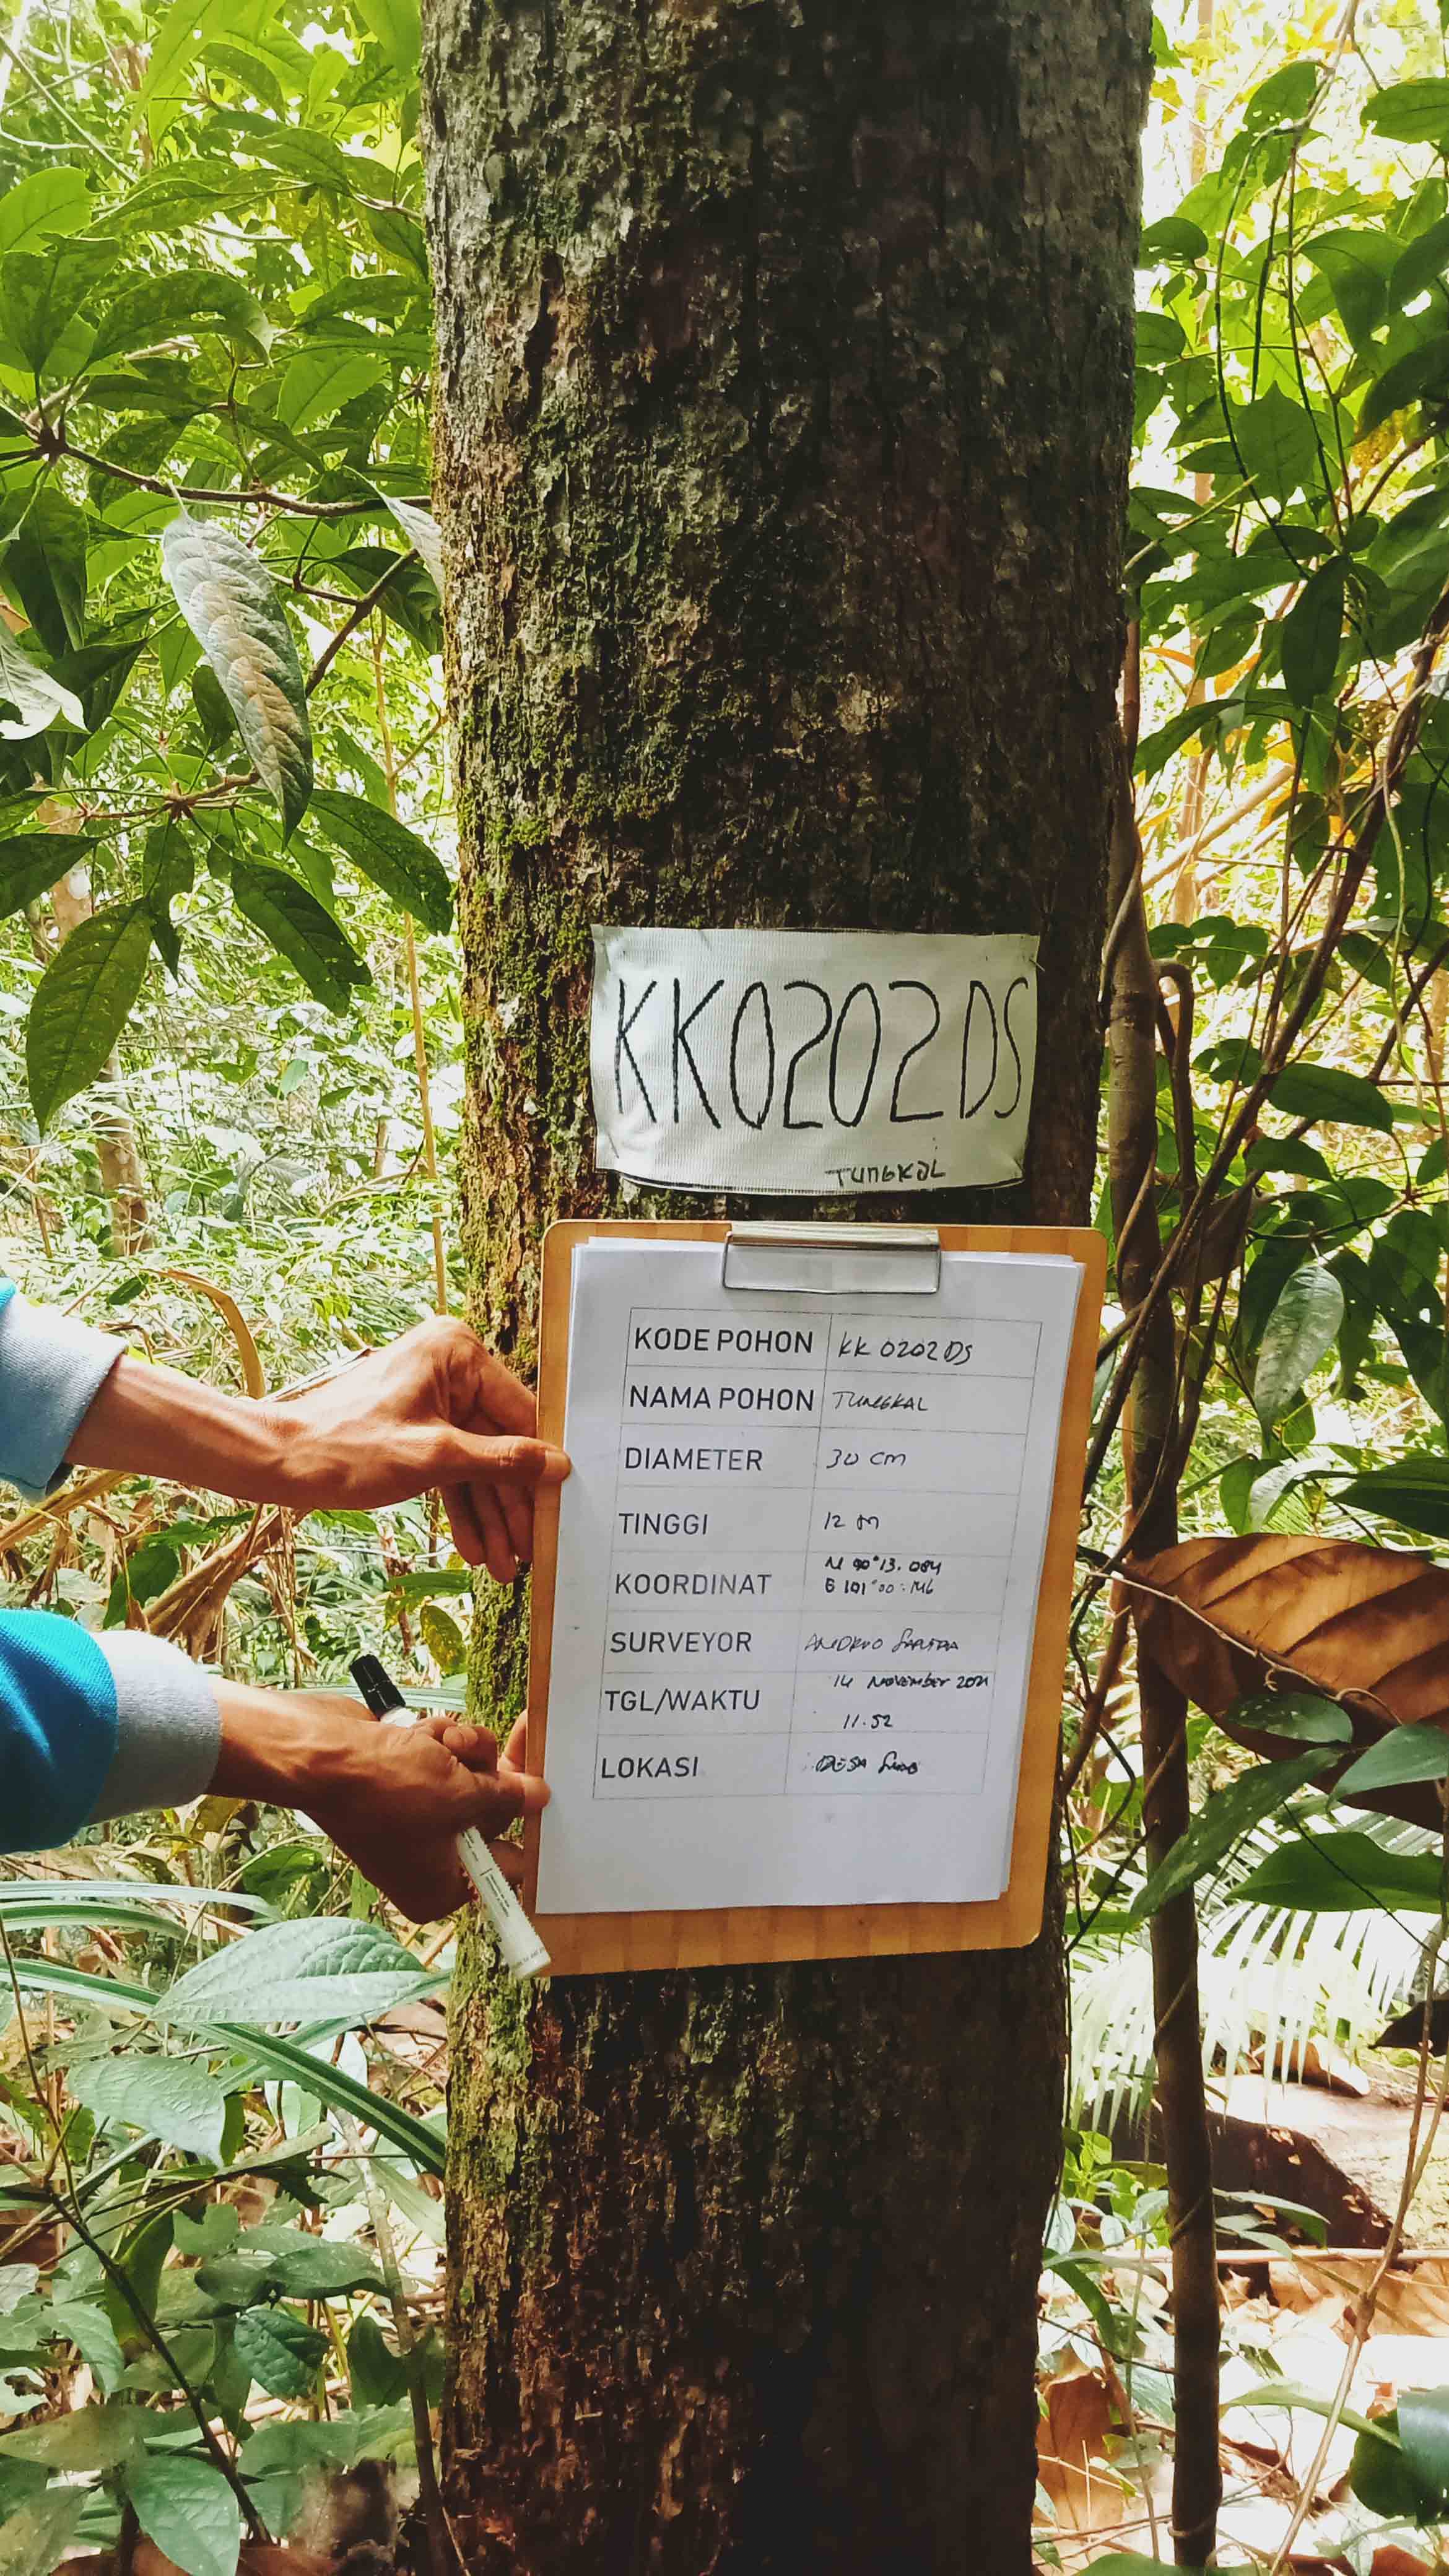 KK0202DS
TUNGKAL
KODE POHON KK 0202 DS
NAMA POHON TUNGKAL
DIAMETER 30 cm
TINGGI 12 m
KOORDINAT N 00° 13. 084
E 101° 00 : 146
SURVEYOR
TGL/WAKTU 14 NOVEMBER 2021
11.52
LOKASI DESA